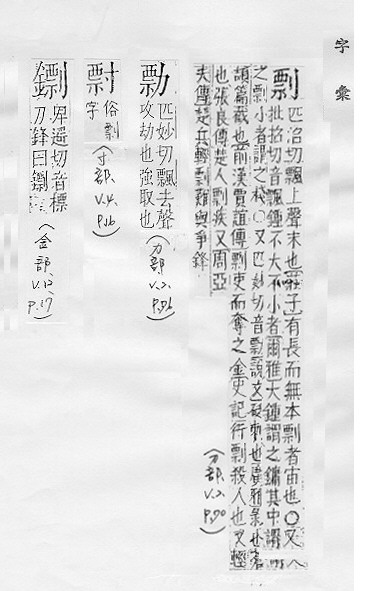 字彙
剽
匹沼切飄上聲末也莊子有長而無本剽者宙也○又
紕招切音飄鍾不大不小者爾雅大鍾謂之鏞其中謂
之剽小者謂之棧○又匹妙切音票說文砭刺也廣雅
頡篇截也前漢賈誼傳剽吏而奪之金史記行剽殺人也又輕
也張良傳楚人剽疾又周亞
夫傳楚兵輕剽難與爭鋒
(刀部、v.2、p.90)
勡
匹妙切飄去聲
攻劫也強取也
(力部、v.2、p.96)
俗剽
字
(寸部、v.4、p.16)
鏢
卑遥切音標
刀鋒曰鏢
(金部、v.12、p.17)